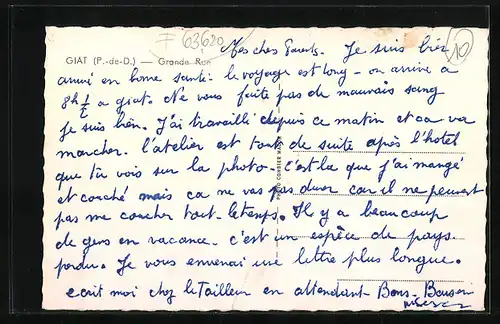 F 63620
10
GIAT (P.-de-D.) — Grande Rue
Mes chers Parents. Je suis bien
arrivé en bonne santé. le voyage est long - on arrive a
8h 1/2 a giat. Ne vous faite pas de mauvais sang
je suis bien. J'ai travaillé depuis ce matin et ca va
marcher. l'atelier est tout de suite après l'hotel
que tu vois sur la photo. c'est la que j'ai mangé
et couché mais ca ne vas pas durer car il ne peuvent
pas me coucher tout le temps. Il y a beaucoup
de gens en vacance. c'est un espèce de pays
perdu. Je vous enverrai une lettre plus longue.
ecrit moi chez le Tailleur en attendant Bons Baisers